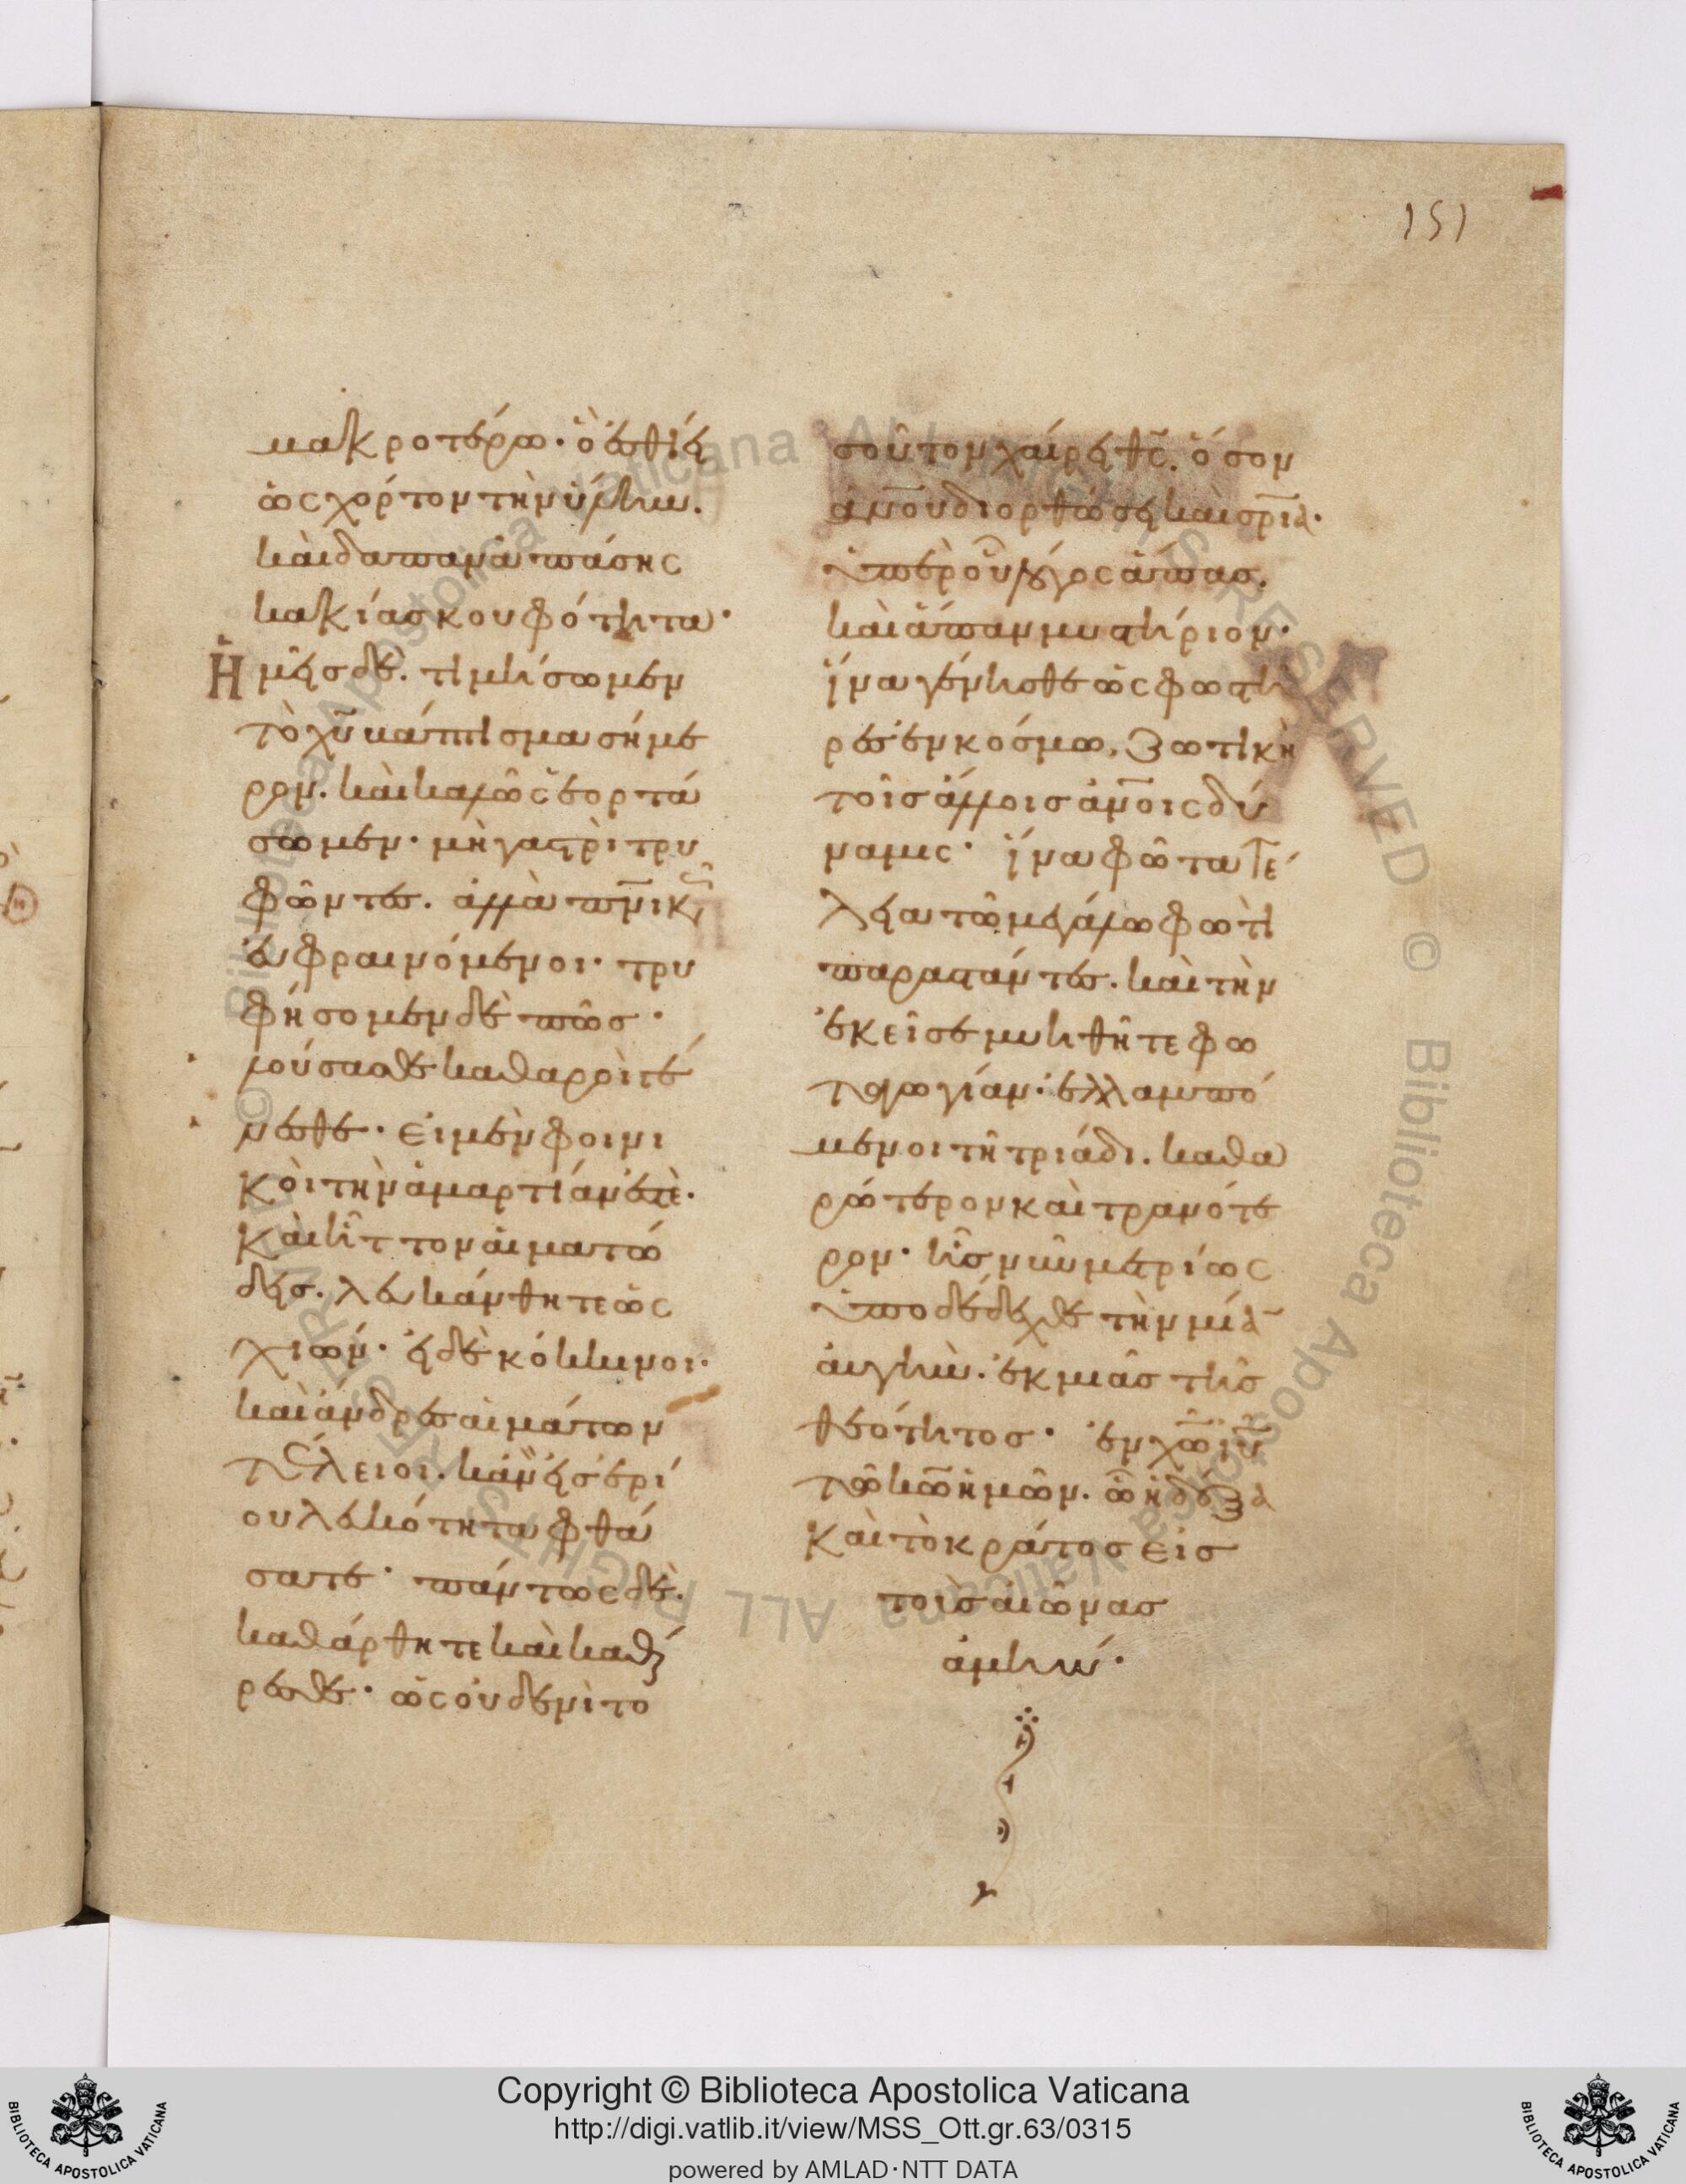 151
μακροτέρω· ὃ ἐσθίει
ὡς χόρτον τὴν ὕλην.
καὶ δαπανᾶ πάσης
κακίας κουφότητα·
Ἡμεῖς δὲ. τιμήσωμεν
τὸ χ̅υ̅ βάπτισμα σήμε
ρον. καὶ καλῶς ἑορτά
σωμεν· μὴ γαστρὶ τρυ
φῶντες. ἀλλὰ πν̅ικῶς
εὐφραινόμενοι· τρυ
φήσομεν δὲ πῶς·
λούσασθε καθαροὶ γέ
νεσθε· εἰ μὲν φοινι
κοὶ τὴν ἁμαρτίαν ἐστὲ·
καὶ ἧττον αἱματώ
δεις. λευκάνθητε ὡς
χιών· εἰ δὲ κόκκινοι·
καὶ ἄνδρες αἱμάτων
τέλειοι. κἂν εἰς ἐρί
ου λευκότητα φθά
σατε· πάντως δὲ·
καθάρθητε καὶ καθαί
ρεσθε· ὡς οὐδενὶ το
σοῦτον χαίρει θ̅ς̅. ὅσον
ἀν̅ου διορθώσει καὶ σ̅ρ̅ια·
ὑπὲρ οὗ λόγος ἅπας.
καὶ ἅπαν μυστήριον·
ἵνα γένησθε ὡς φωστῆ
ρες ἐν κόσμω, ζωτικὴ
τοῖς ἄλλοις ἀν̅οις δύ
ναμις· ἵνα φῶτα τέ
λεια τῶ μεγάλω φωτὶ
παραστάντες. καὶ τὴν
ἐκεῖσε μυηθῆτε φω
ταγωγίαν· ἐλλαμπό
μενοι τῆ τριάδι. καθα
ρώτερον καὶ τρανότε
ρον· ἧς νῦν μετρίως
ὑποδέδεχθε τὴν μίαν
αὐγὴν. ἐκ μιᾶς τῆς
θεότητος· ἐν χ̅ω̅ ι̅υ̅
τῶ κ̅ω̅ ἡμῶν. ὧ ἡ δόξα
καὶ τὸ κράτος εἰς
τοὺς αἰῶνας
ἀμήν·
Copyright © Biblioteca Apostolica Vaticana
http://digi.vatlib.it/view/MSS_Ott.gr.63/0315
powered by AMLAD·NTT DATA